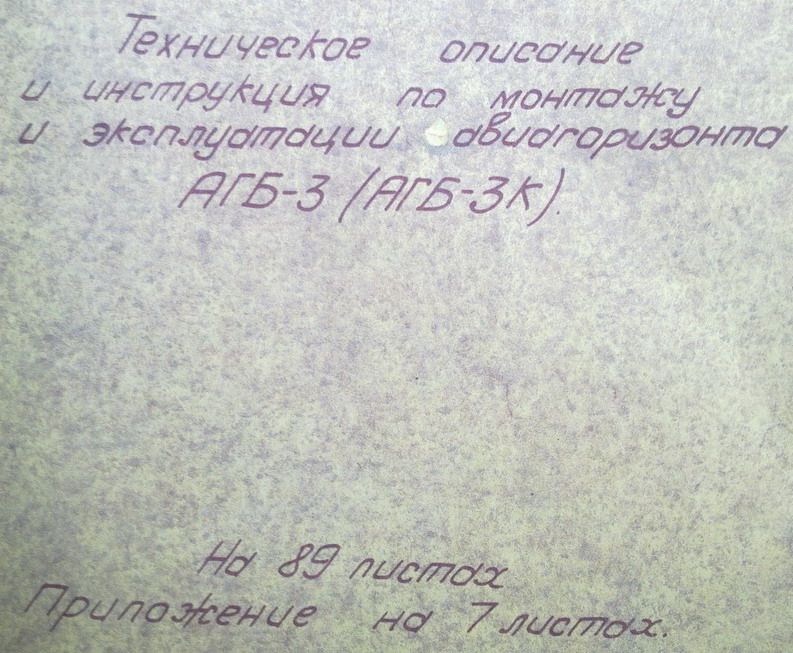 Техническое описание
и инструкция по монтажу
и эксплуатации авиагоризонта
АГБ-3 (АГБ-3К).
На 89 листах
Приложение на 7 листах.